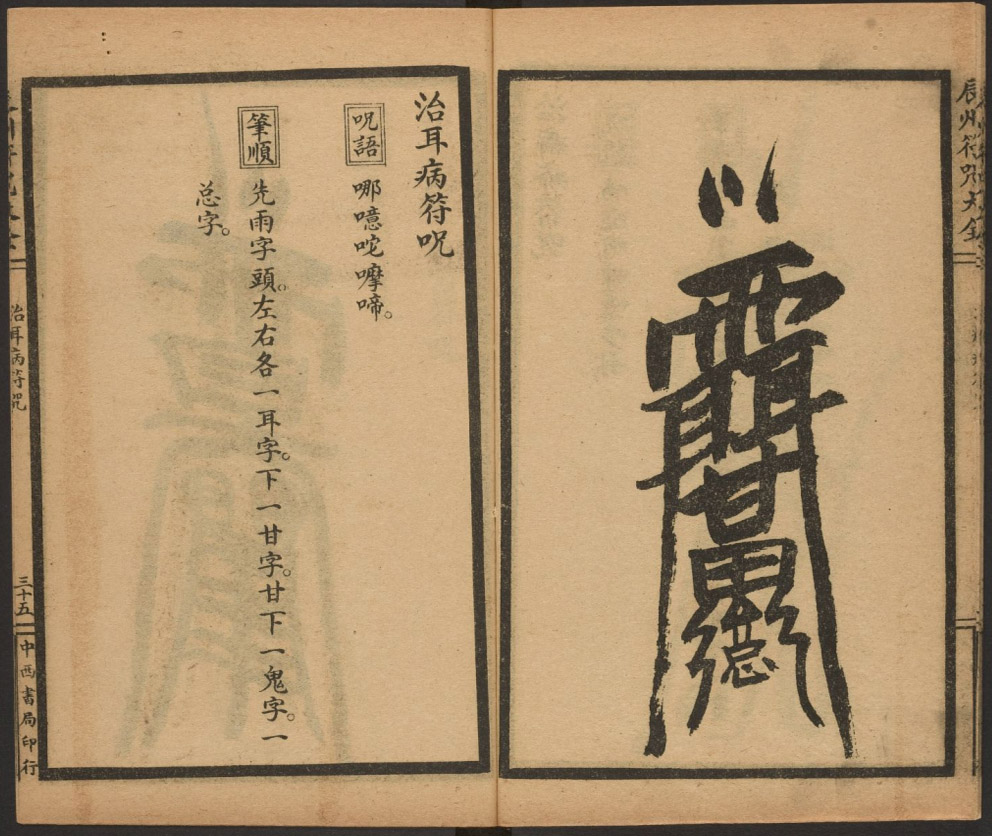 辰州符咒大全
治耳病符咒
咒語
哪噫咜嚤啼。
筆順
先雨字頭。左右各一耳字。下一甘字。甘下一鬼字。一
总字。
治耳病符咒
三十五
中西書局印行